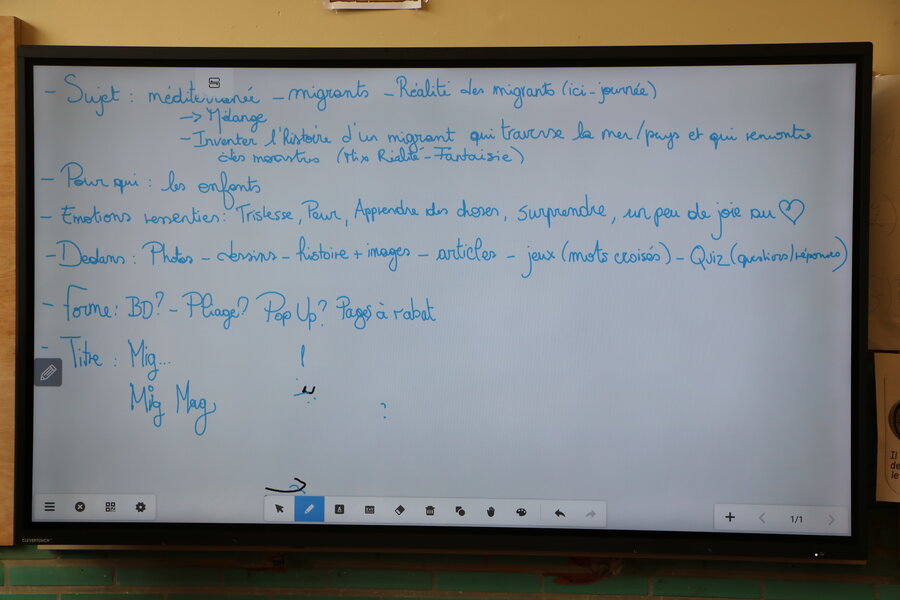 - Sujet : méditerranée - migrants - Réalité des migrants (ici - journée)
-> Mélange
- Inventer l'histoire d'un migrant qui traverse la mer/pays et qui rencontre
des monstres (Mix Réalité-Fantaisie)
- Pour qui : les enfants
- Emotions ressenties : Tristesse, Peur, Apprendre des choses, surprendre, un peu de joie au ♡
- Dedans : Photos - dessins - histoire + images - articles - jeux (mots croisés) - Quiz (questions/réponses)
- Forme : BD? - Pliage? Pop Up? Pages à rabat
- Titre : Mig...
Mig Mag
?
1/1
CLEVERTOUCH
Il
de